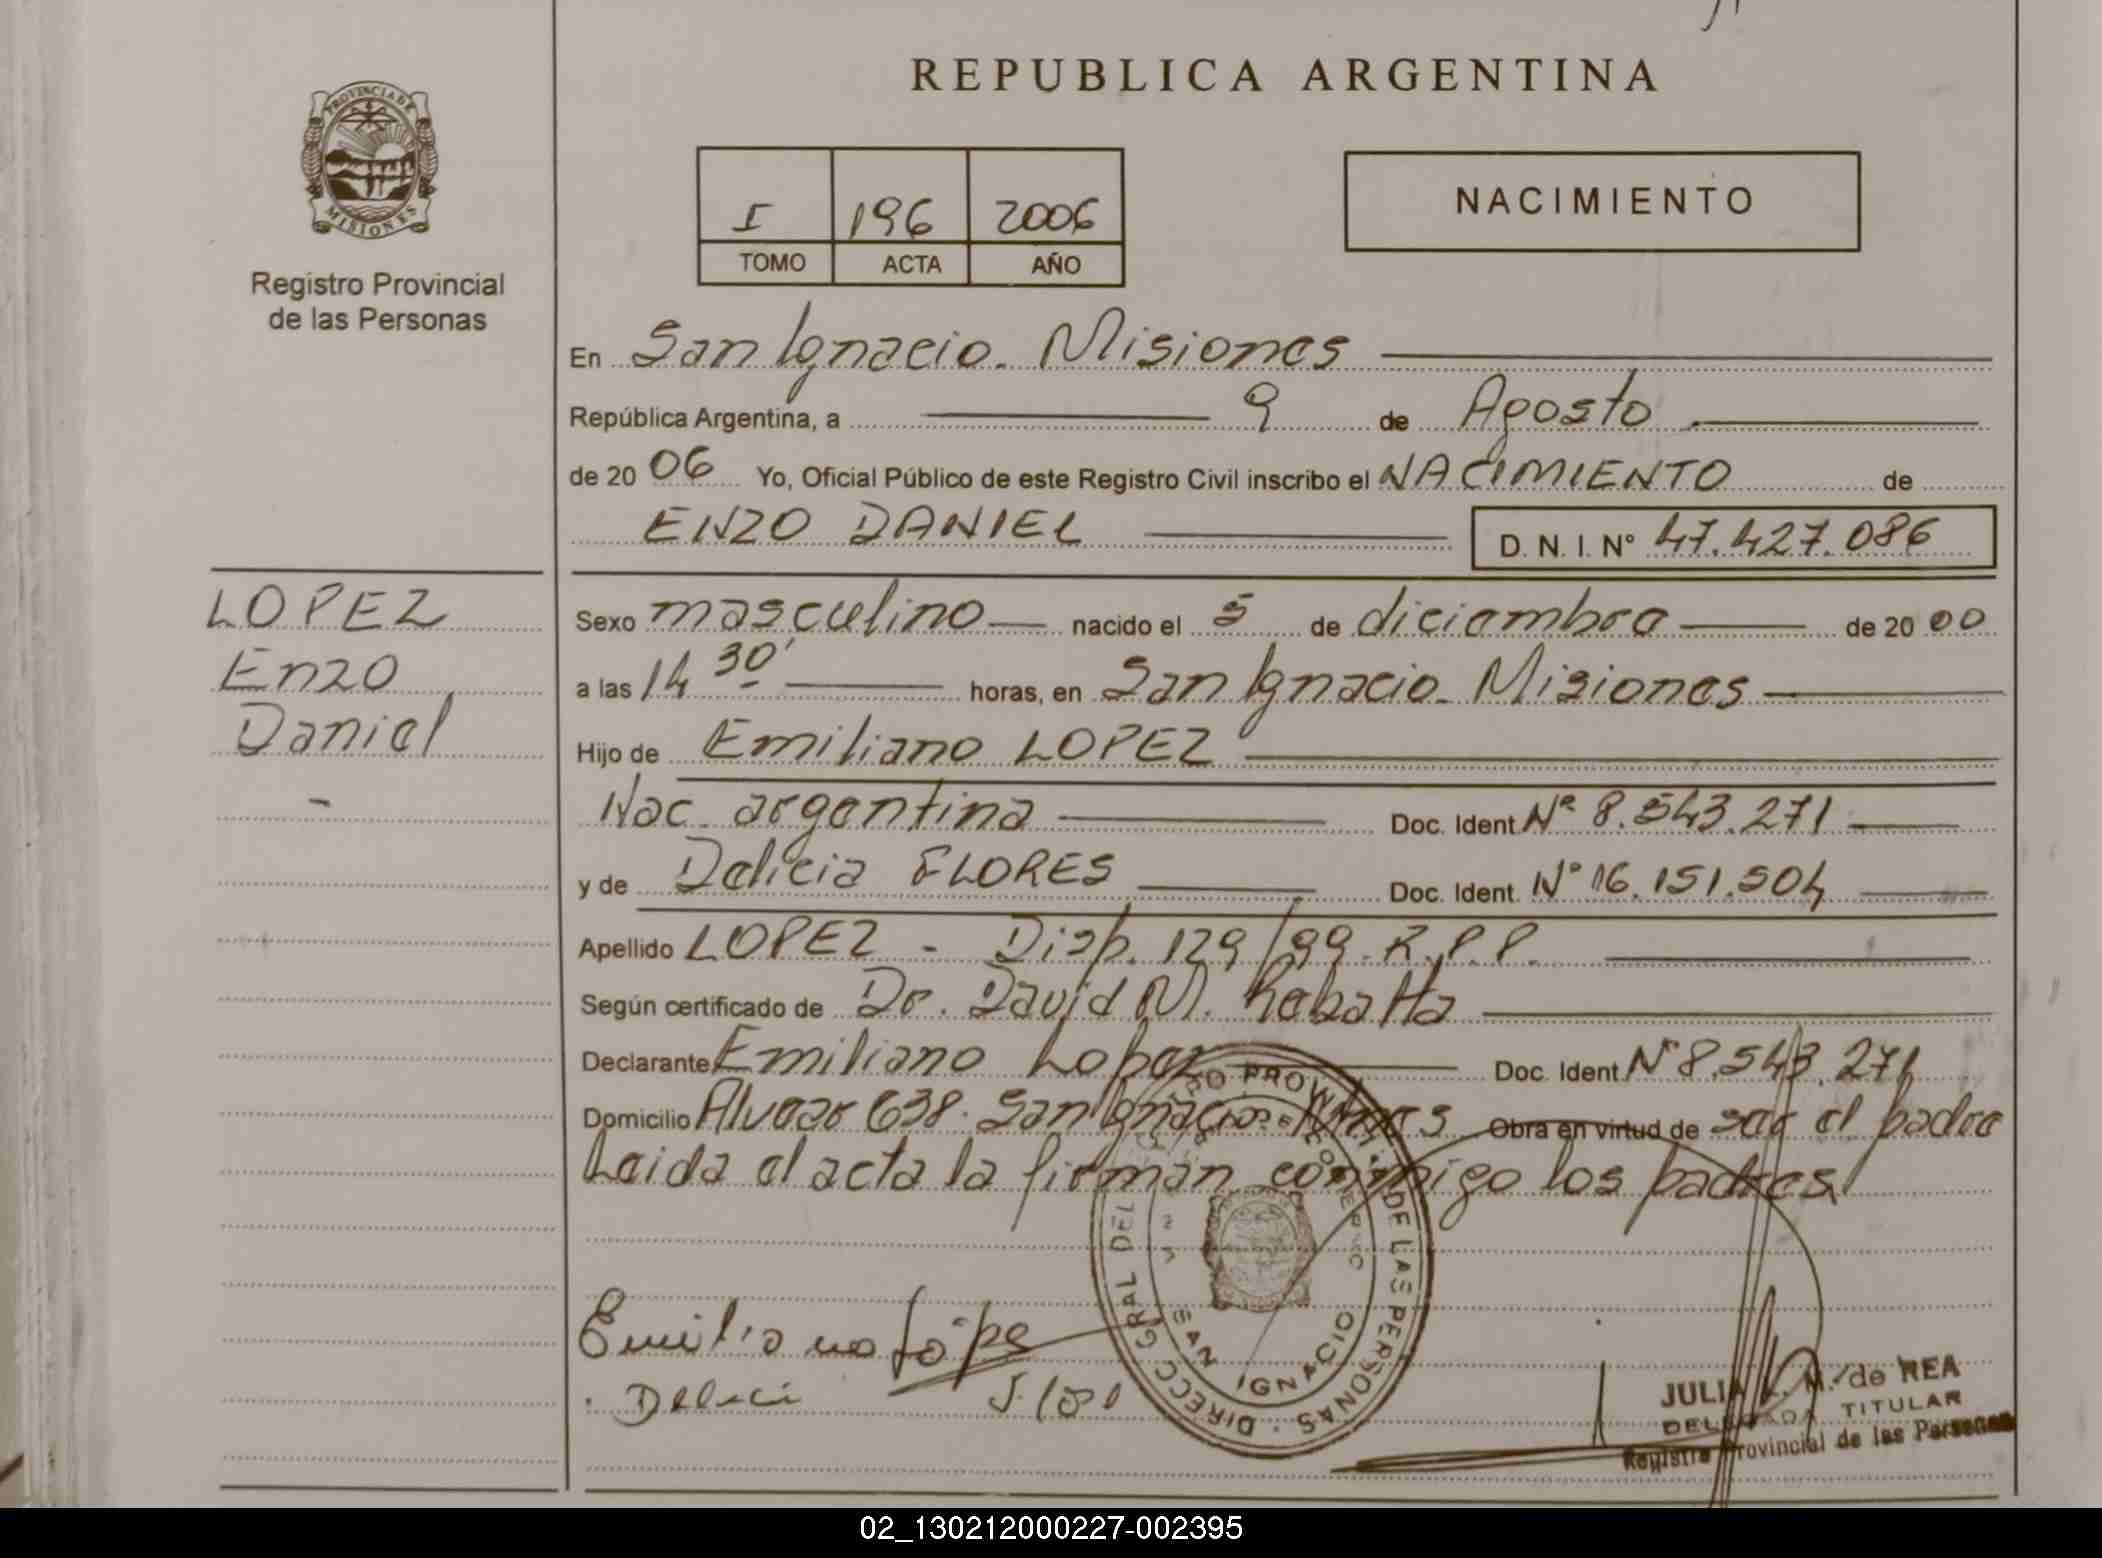 REPUBLICA ARGENTINA
PROVINCIA DE
MISIONES
Registro Provincial
de las Personas
I 196 2006
TOMO ACTA AÑO
NACIMIENTO
En San Ignacio. Misiones
República Argentina, a 9 de Agosto
de 20 06 Yo, Oficial Público de este Registro Civil inscribo el NACIMIENTO de
ENZO DANIEL D. N. I. N° 47.427.086
LOPEZ
Enzo
Daniel
-
Sexo masculino nacido el 5 de diciembre de 20 00
a las 14 30' horas, en San Ignacio. Misiones
Hijo de Emiliano LOPEZ
Nac. argentina Doc. Ident. Nº 8.543.271
y de Delicia FLORES Doc. Ident. N° 16.151.504
Apellido LOPEZ - Disp. 129/99. R.P.P.
Según certificado de Dr. David M. Rebatta
Declarante Emiliano Lopez Doc. Ident. Nº 8.543.271
Domicilio Alvear 638. San Ignacio. Mnes Obra en virtud de ser el padre
Leida el acta la firman conmigo los padres
Emiliano Lópe
Delici
DIRECC GRAL DEL PROV DE LAS PERSONAS
SAN IGNACIO
JULIA M. de REA
DELEGADA TITULAR
Registro Provincial de las Personas
02_130212000227-002395